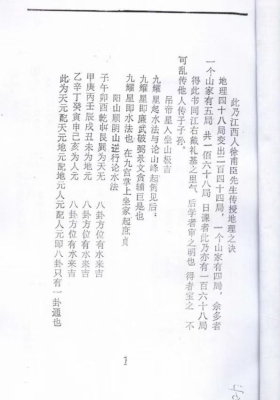 此乃江西人徐甫臣先生传授地理之诀
地理四十八局变出二百四十四局，一个山家有四局，余多者
一个山家有五局，共一佰六十八局，日课者此乃亦有一百六十八局
得此书同江右戴礼基之里气，后学者审之明也，得者宝之，不
可乱传他人传子子孙。
吊帝星人坐山极吉
九耀星起水法与论山峰起例见后：
九耀星即廉武破弼录文贪辅巨是也
九耀星即水法也，在九宫掌上坐家起
阳山顺阴山逆行论水法
子午卯酉乾坤艮巽为天元　八卦方位有水来吉
甲庚丙壬辰戌丑未为地元　八卦方位有水来吉
乙辛丁癸寅申己亥为人元　八卦方位有水来吉
此为天元配天元地元配地元人元配人元即八卦只有一卦通也
1